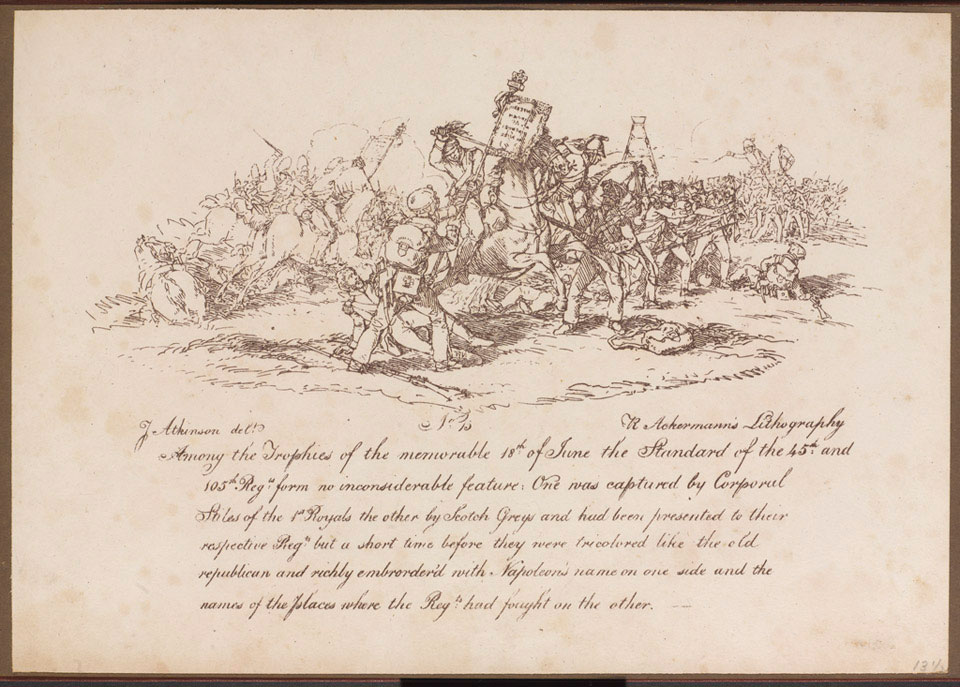 J. Atkinson delt.
No.
R Ackermann's Lithography
Among the Trophies of the memorable 18th of June the Standard of the 45th and
105th Regts form no inconsiderable feature: One was captured by Corporal
Stiles of the 1st Royals the other by Scotch Greys and had been presented to their
respective Regts but a short time before they were tricolored like the old
republican and richly embrorder'd with Napoleon's name on one side and the
names of the Places where the Regts had fought on the other.